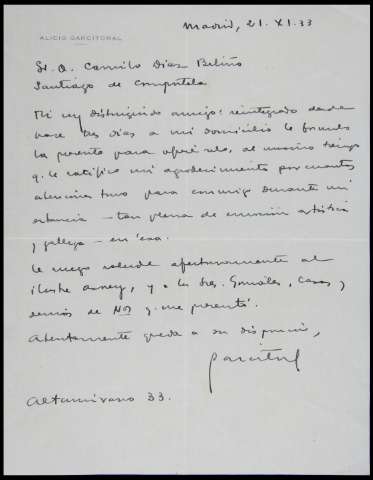 Madrid, 21. XI. 33
ALICIO GARCITORAL
Sr. D. Camilo Díaz Baliño
Santiago de Compostela
Mi muy distinguido amigo: reintegrado desde
hace tres días a mi domicilio le formulo
la presente para ofrecérselo, al mismo tiempo
q. le ratifico mi agradecimiento por cuantas
atenciones tuvo para conmigo durante mi
estancia — tan plena de emoción artística
y gallega — en ésa.
Le ruego salude afectuosamente al
ilustre y a los Sres. González, Casas y
demás de q. me presentó.
Atentamente queda a su disposición,
Garcitoral
Altamirano 33.